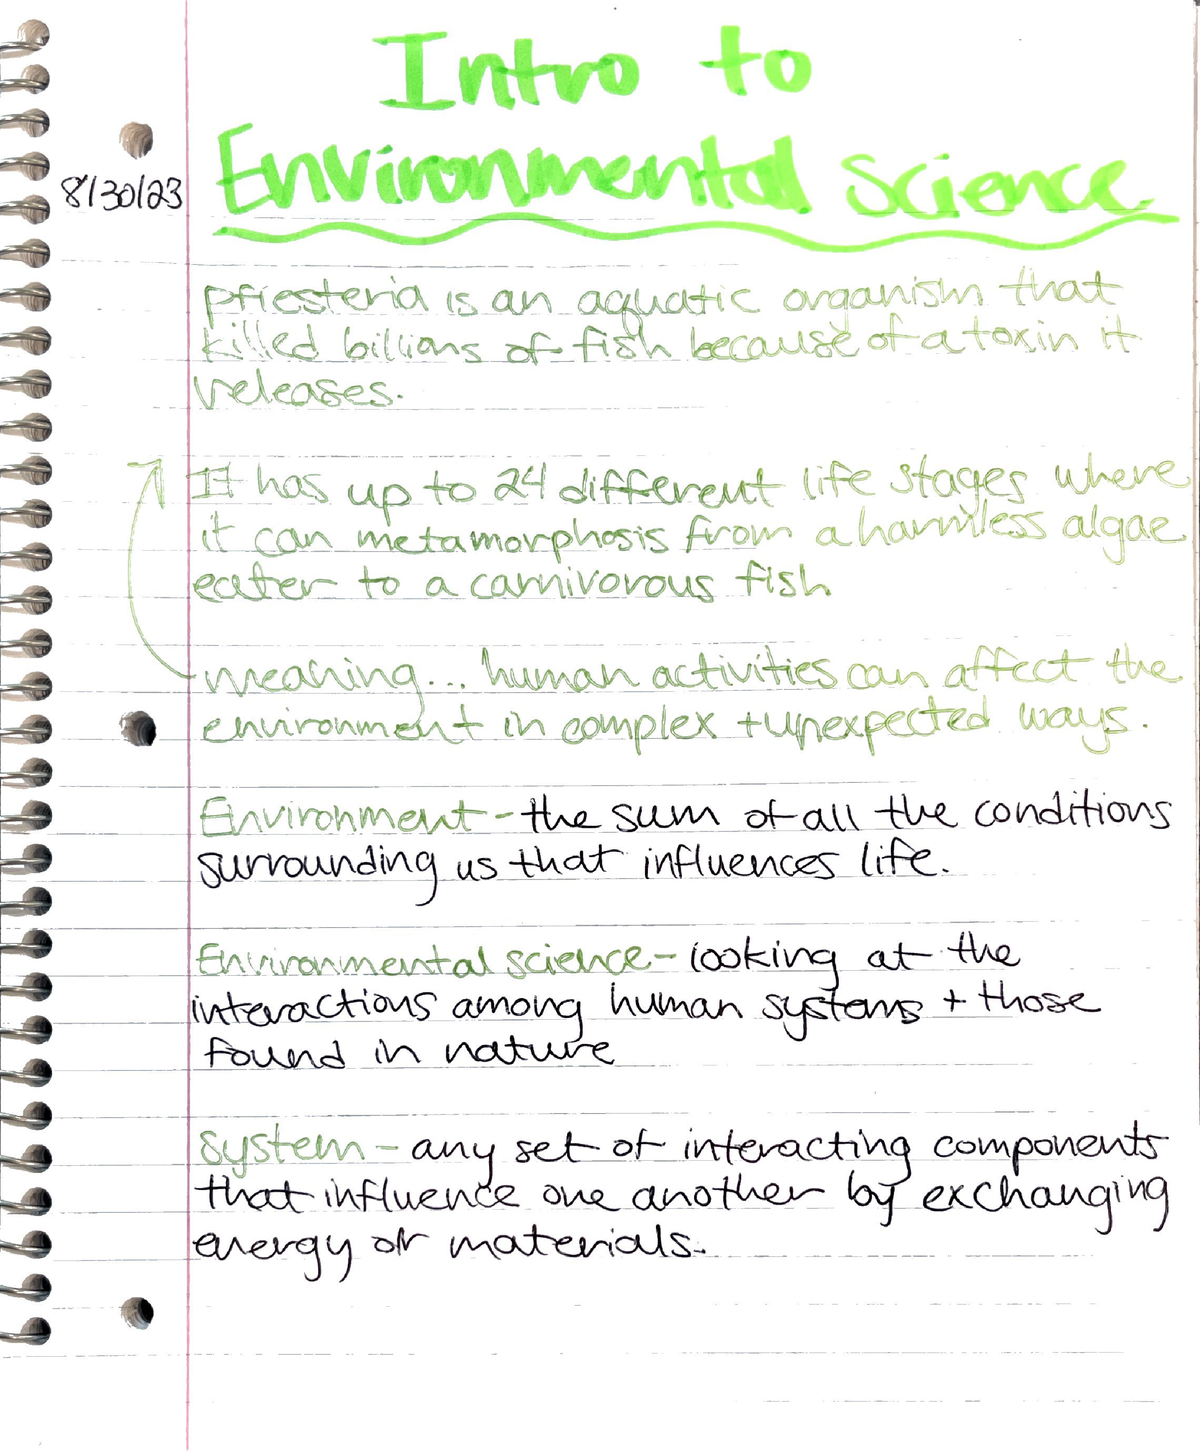 Intro to
Environmental Science
8/30/23
pfiesteria is an aquatic organism that
killed billions of fish because of a toxin it
releases.
It has up to 24 different life stages where
it can metamorphosis from a harmless algae
eater to a carnivorous fish
meaning... human activities can affect the
environment in complex + unexpected ways.
Environment - the sum of all the conditions
surrounding us that influences life.
Environmental science - looking at the
interactions among human systems + those
found in nature
System - any set of interacting components
that influence one another by exchanging
energy or materials.